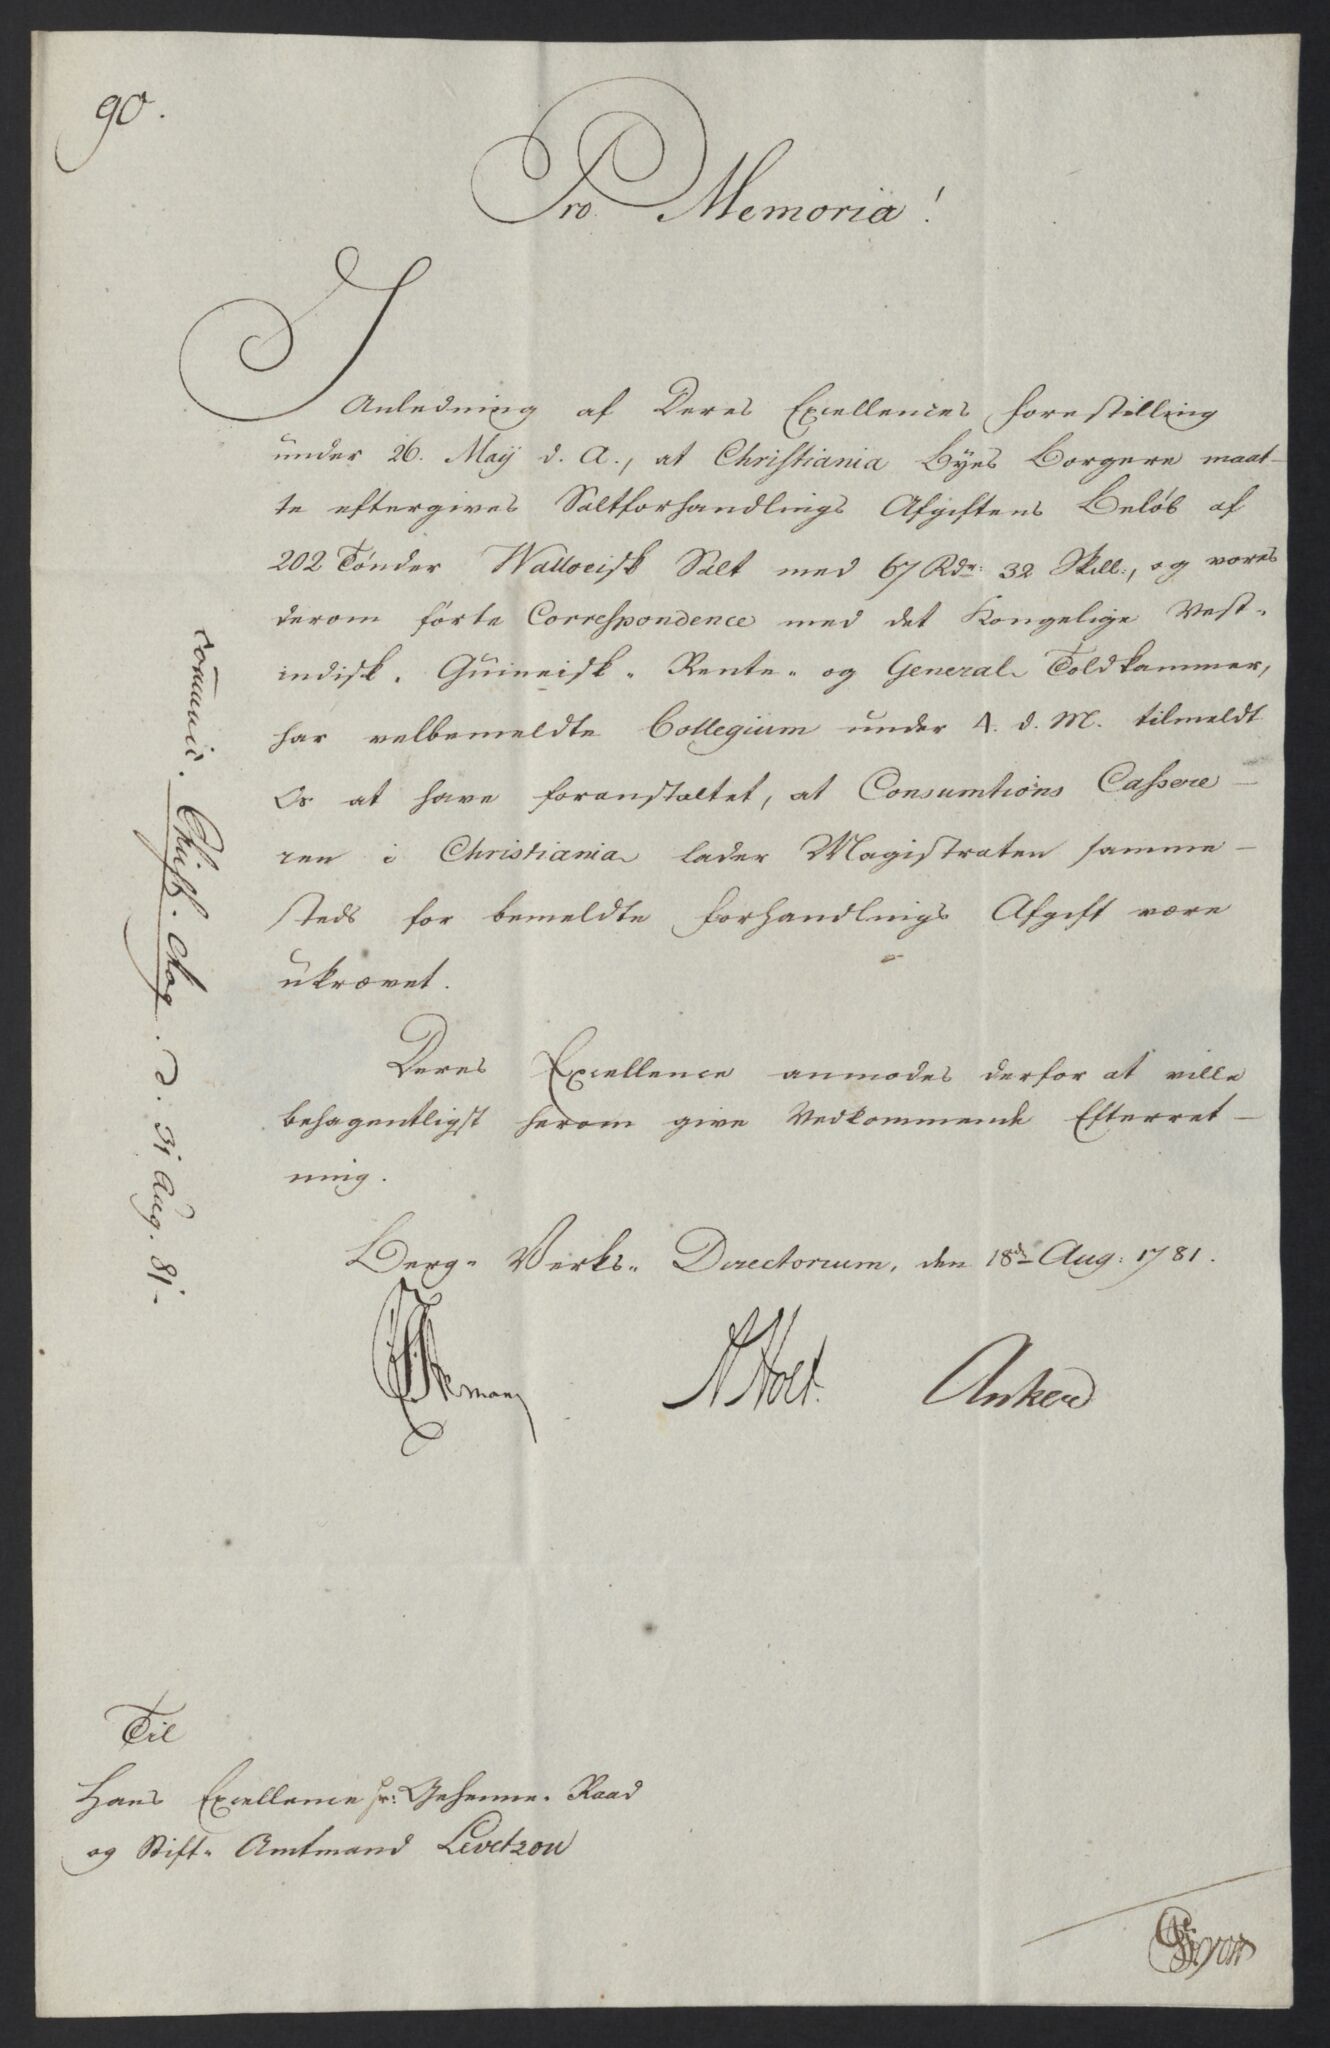 90.
Pro Memoria!
I
Anledning af Deres Excellences Forestilling
under 26. Maÿ d. A., at Christiania Byes Borgere maat-
te eftergives Saltforhandlings Afgiftens Beløb af
202 Tønder Walloeisk Salt med 67 Rdr: 32 Skill:, og vores
derom førte Correspondence med det Kongelige Vest-
indisk- Guineisk- Rente- og General Toldkammer,
har velbemeldte Collegium under 4. d. M. tilmeldt
Os at have foranstaltet, at Consumtions Cassere-
ren i Christiania lader Magistraten samme-
steds for bemeldte Forhandlings Afgift være
ukrævet.
Deres Excellence anmodes derfor at ville
behagentligst herom give Vedkommende Efterret-
ning.
Berg- Verks- Directorium, den 18de Aug: 1781.
NHolt. Anker
Til
Hans Excellence Hr: Geheime- Raad
og Stift- Amtmand Levetzou
communic. Christ. Mag. d. 31 Aug. 81.